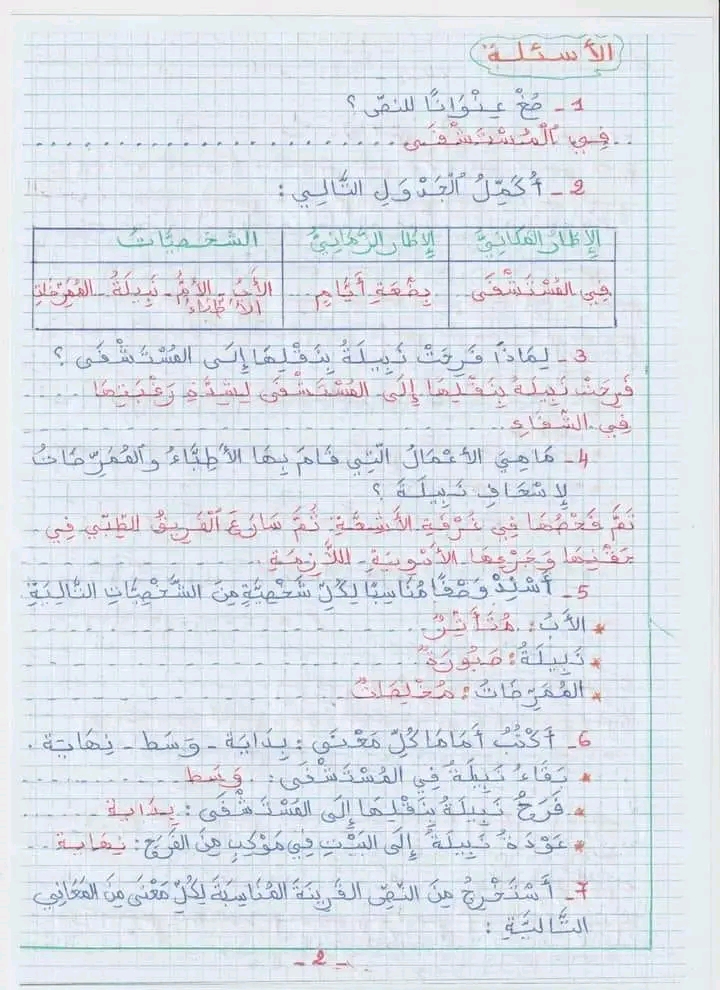 الأسئلة
1- صُغْ عِنْوَانًا للنصّ ؟
فِي الْمُسْتَشْفَى
2- أُكَمِّلُ الْجَدْوَلِ التَّالِي :
الإِطَارُ المَكَانِيُّ الإِطَارُ الزَّمَانِيُّ الشخصيّات
فِي المُسْتَشْفَى بِضْعَةِ أَيَّامٍ الأَبُ - الأُمُّ - نَبِيلَةُ - المُمَرِّضَاتُ
الأَطِبَّاءُ
3- لِمَاذَا فَرِحَتْ نَبِيلَةُ بِنَقْلِهَا إِلَى المُسْتَشْفَى ؟
فَرِحَتْ نَبِيلَةُ بِنَقْلِهَا إِلَى المُسْتَشْفَى لِشِدَّةِ رَغْبَتِهَا
فِي الشِّفَاءِ
4- مَا هِيَ الأَعْمَالُ الّتِي قَامَ بِهَا الأَطِبَّاءُ وَالمُمَرِّضَاتُ
لِإِسْعَافِ نَبِيلَةَ ؟
تَمَّ فَحْصُهَا فِي غُرْفَةِ الأَشِعَّةِ ثُمَّ سَارَعَ الْفَرِيقُ الطِّبِّي فِي
حَقْنِهَا وَجَرْعِهَا الأَدْوِيَةَ اللاَّزِمَةَ
5- أُسْنِدُ وَصْفًا مُنَاسِبًا لِكُلِّ شَخْصِيَّةٍ مِنَ الشَّخْصِيَّاتِ التَّالِيَةِ
* الأَبُ : مُتَأَثِّرٌ
* نَبِيلَةُ : صَبُورَةٌ
* المُمَرِّضَاتُ : مُخْلِصَاتٌ
6- أَكْتُبُ أَمَامَ كُلِّ مَعْنَى : بِدَايَة - وَسَط - نِهَايَة .
* بَقَاءُ نَبِيلَةَ فِي المُسْتَشْفَى : وَسَط
* فَرَحُ نَبِيلَةُ بِنَقْلِهَا إِلَى المُسْتَشْفَى : بِدَايَة
* عَوْدَةُ نَبِيلَةُ إِلَى البَيْتِ فِي مَوْكِبٍ مِنَ الفَرَحِ : نِهَايَة
7- أَسْتَخْرِجُ مِنَ النَّصِّ القَرِينَةَ المُنَاسِبَةَ لِكُلِّ مَعْنَى مِنَ المَعَانِي
التَّالِيَّةِ :
- 2 -